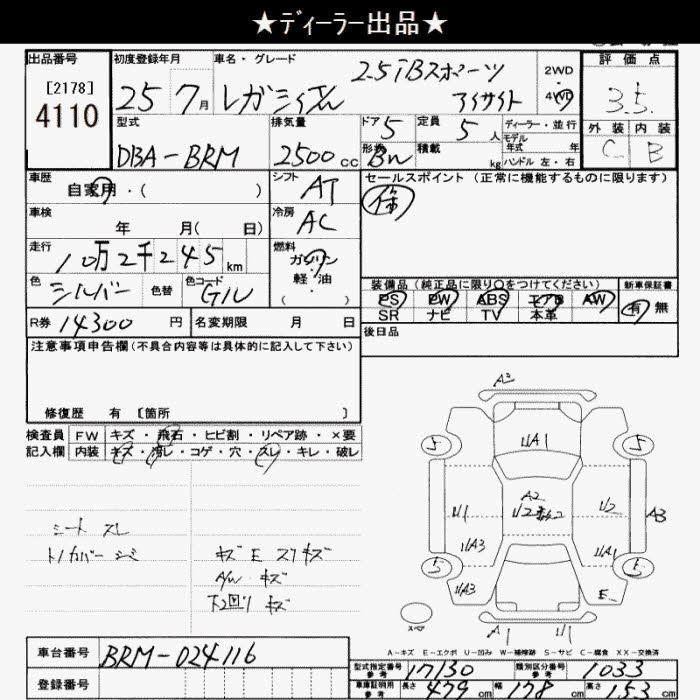 ★ディーラー出品★
出品番号 初度登録年月 車名・グレード 評価点
[2178] 25 7月 レガシィ 2.5iBスポーツ アイサイト 2WD 4WD 3.5
4110 型式 排気量 ドア 5 定員 5人 ディーラー・並行 外装 内装
DBA-BRM 2500cc 形状 BW 積載 kg モデル年式 年 ハンドル 左・右 C B
車歴 自家用・( ) シフト AT セールスポイント (正常に機能するものに限ります)
車検 年 月( 日) 冷房 AC
走行 10万2千245km 燃料 ガソリン 軽・油 ( )
色 シルバー 色替 色コード G1U
装備品(純正品に限り○をつけてください) 新車保証書
PS PW ABS エアB AW 有 無
SR ナビ TV 本革
R券 14300円 名変期限 月 日 後日品
注意事項申告欄(不具合内容等は具体的に記入して下さい)
修復歴 有 [箇所 ]
検査員 FW キズ・飛石・ヒビ割・リペア跡・×要
記入欄 内装 キズ・汚レ・コゲ・穴・スレ・キレ・破レ
シート スレ
トノカバー シミ
キズ E スリキズ
A/W キズ
下2回リ キズ
A2
5 U/A1 5
A2
U1 U2 U2 A3
U/A3 U/A1
5 5
U/A3 E
スペア A1 U1
A-キズ E-エクボ U-凹み W-補修跡 S-サビ C-腐食 XX-交換済
車台番号 BRM-024116
登録番号
型式指定番号 参考 17130 類別区分番号 参考 1033
車庫証明用 参考 長さ 479cm 幅 178cm 高さ 153cm